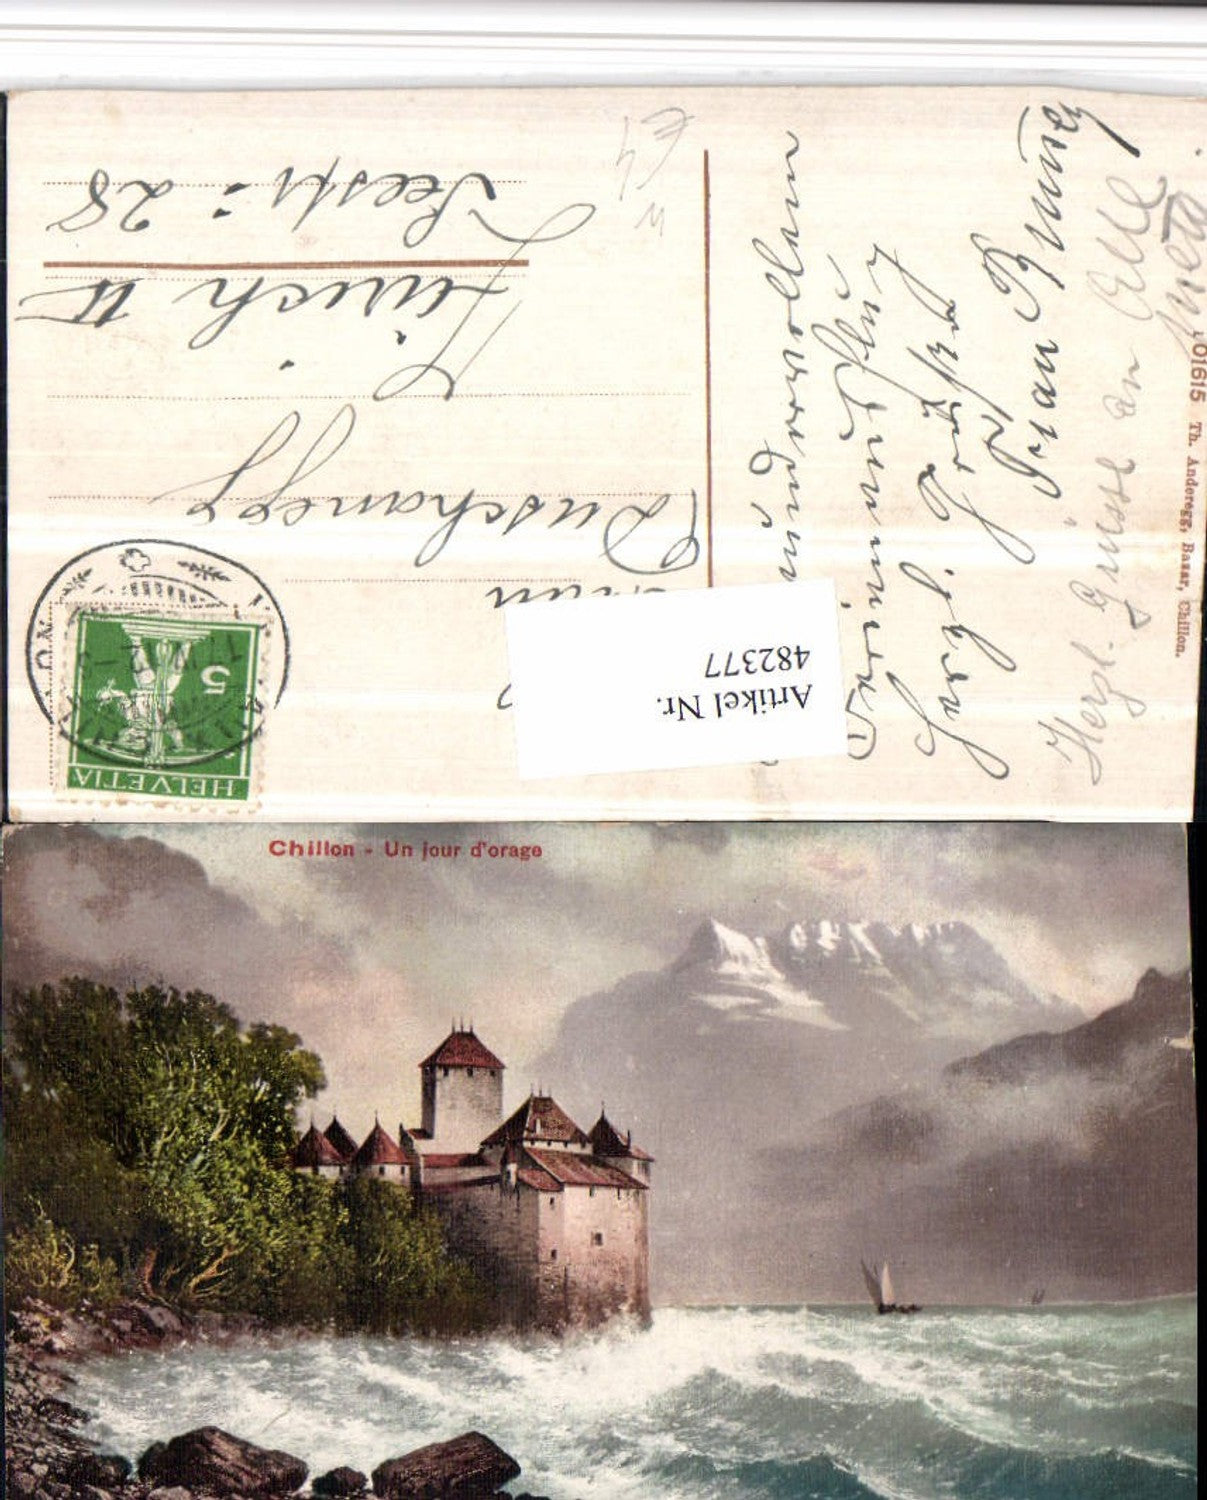 Duschanegg
Zürich II
Seestr: 28
wundervollen
Herzl. Grüsse
Frau Brunner
Herzl. Grüsse an Alle
Meta.
01615 Th. Anderegg, Bazar, Chillon.
HELVETIA
5
Artikel Nr.
482377
Chillon - Un jour d'orage